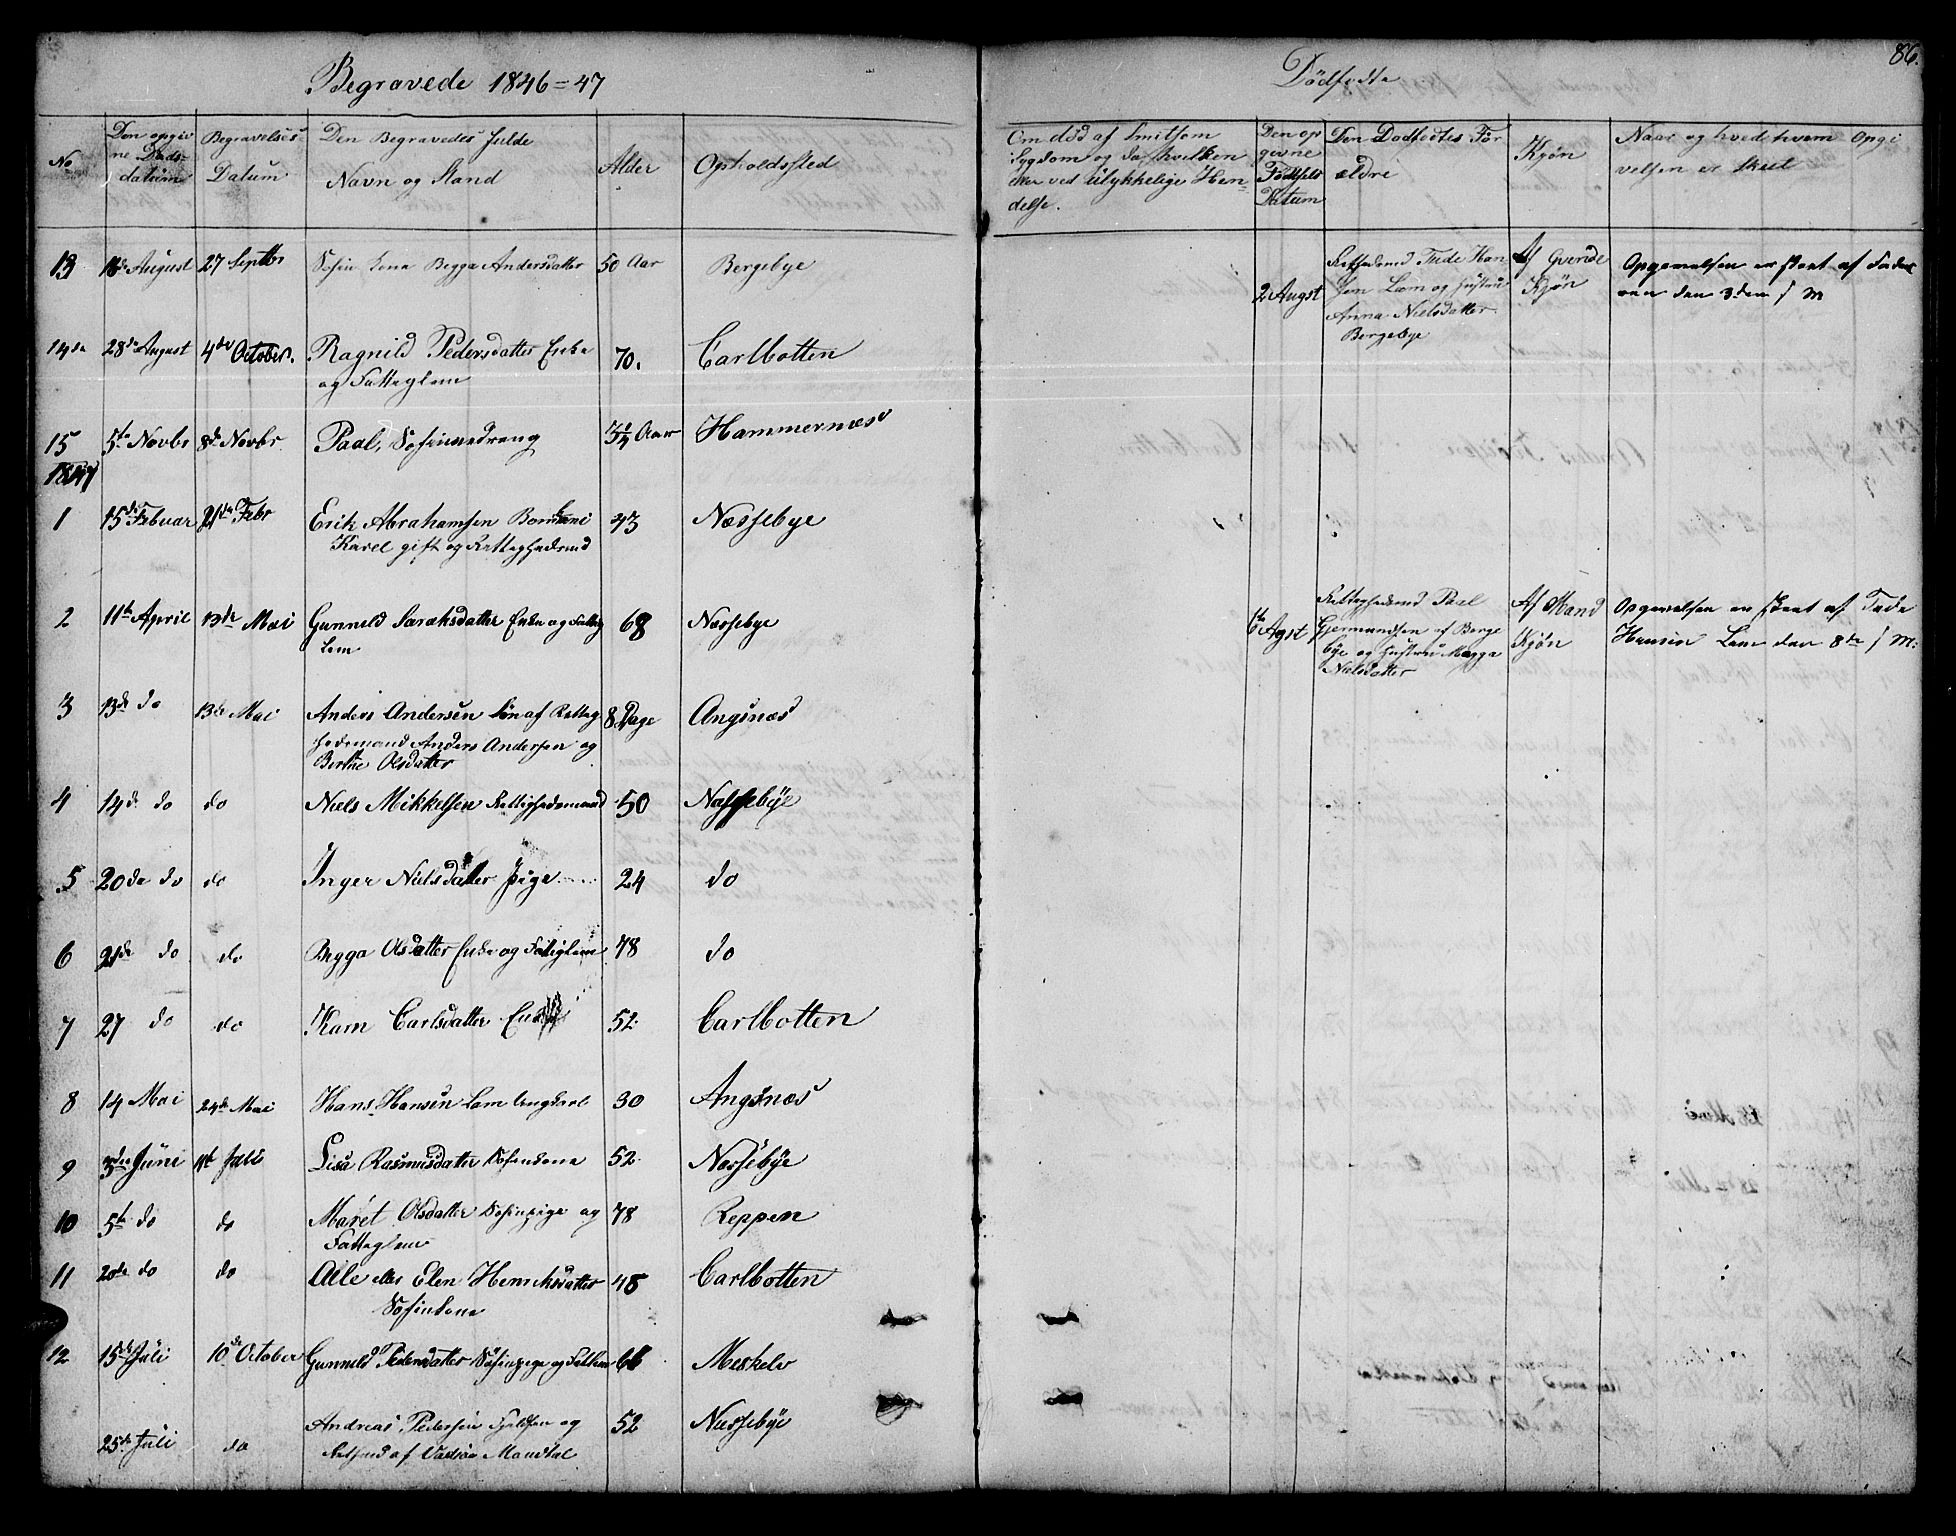 86.
Begravede 1846=47
No
Den opgiv
ne Døds-
datum
Begravelses
Datum
Den Begravedes fulde
Navn og Stand
Alder
Opholdssted
13 August 27 Septbr Begga Andersdatter 50 Aar Bergebye
14de 28de August 4de October. Ragnild Pedersdatter Enke 70. Carlbotten
og Fattiglem
15 5te Novbr 8de Novbr Paal, Søfinnedreng 3¼ Aar Hammernæs
1847
1 15de Febuar 21de Febr Erik Abrahamsen 43 Næssebye
Karel gift og Rettighedsmd
2 11te April 13de Mai Gunneld Saraksdatter Enke og Fattig 68 Næssebye
Lem
3 13de do 13de Mai Anders Andersen Søn af Rettig 8 Dage Angsnæs
hedsmand Anders Andersen og
Berthe Olsdatter
4 14de do do Niels Mikkelsen Rettighedsmand 50 Næssebye
5 20de do do Inger Nielsdatter Pige 24 do
6 21de do do Begga Olsdatter Enke og Fattiglem 78 do
7 27 do do Karn Carlsdatter 52 Carlbotten
8 14 Mai 24de Mai Hans Hansen Lam Ungkarl 30 Angsnæs
9 Juni Juli Lisa Rasmusdatter Søfinkone 52 Næssebye
10 5te do do Maret Olsdatter Søfinpige og 78 Reppen
Fattiglem
11 20de do do Aile eller Elen Henriksdatter 48 Carlbotten
Søfinkone
12 15de Juli 10de October Gunneld Pedersdatter Søfinpige og 66 Meskelv
25de Juli do Andreas Pedersen og 52 Næssebye
af Mandtal
Dødfødte
Om død af Smitsom
Sygdom og da hvilken
eller ved ulykkelige Hen-
delse.
Den op
givne
Fødsels
Datum
Den Dødfødtes For
ældre
Kjøn
Naar og hved hvem Opgi
velsen er skeet
2 Augst
Tude Han
sen Lam og Hustru
Anna Nielsdatter
Bergebye
Af Qvinde
Kjøn
Opgivelsen er skeet af Fade
ren den 3den s M
6te Agst
Rettighedsmd Paal
Gjermundsen af Berge
bye og Hustru Magga
Nielsdatter
Af Mand
Kjøn
Opgivelsen er skeet af Tude
Hansen Lam den 8de s M.